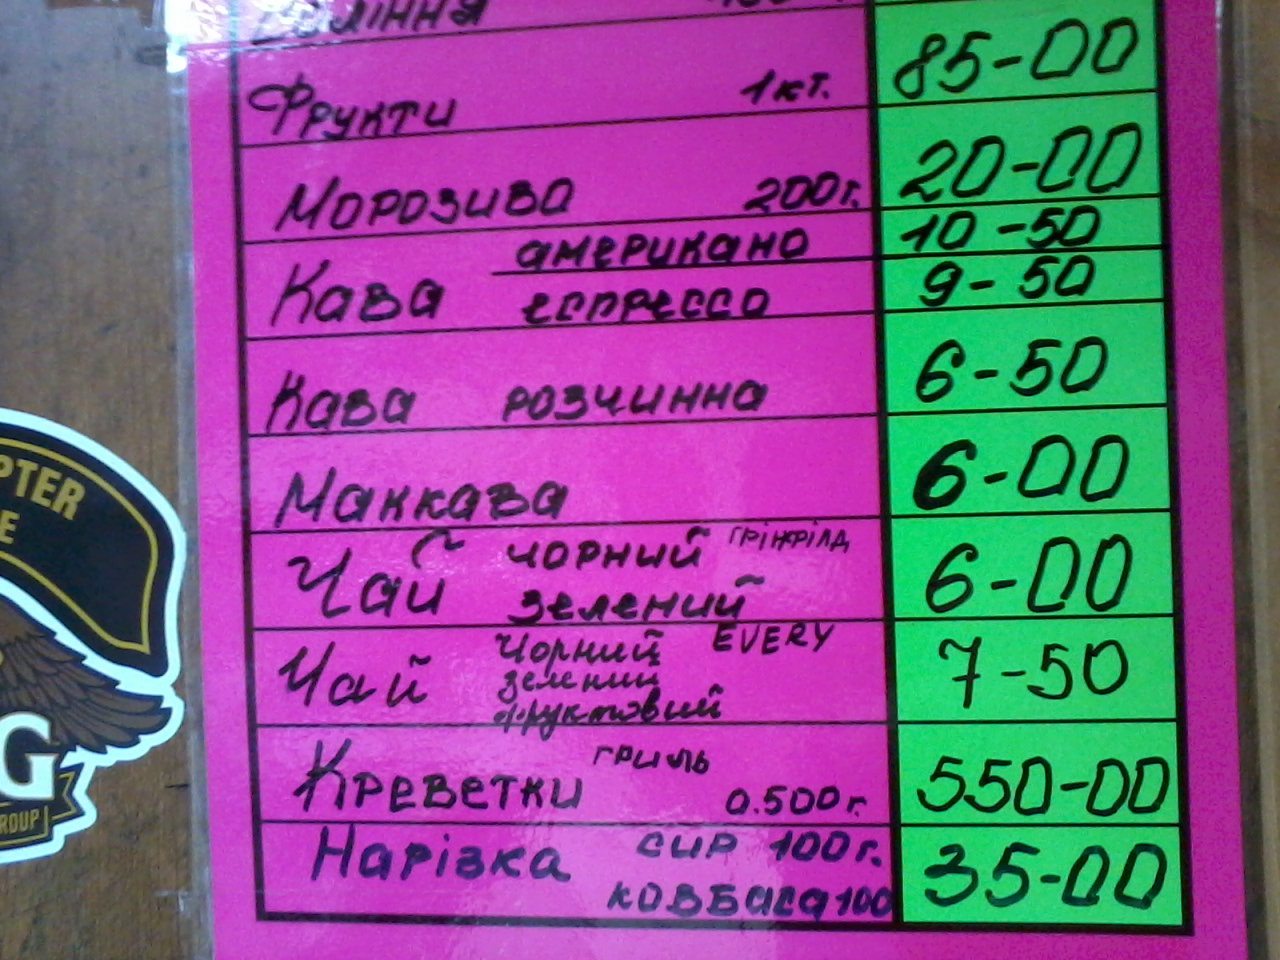 Фрукти 1кг. 85-00
Морозиво 200г. 20-00
Кава американо 10-50
еспрессо 9-50
Кава розчинна 6-50
Маккава 6-00
Чай чорний грінфілд
зелений 6-00
Чай Чорний EVERY
зелений 7-50
фруктовий
Креветки гриль 0.500г. 550-00
Нарізка сир 100г. 35-00
ковбаса 100
PTER
E
G
ROUP